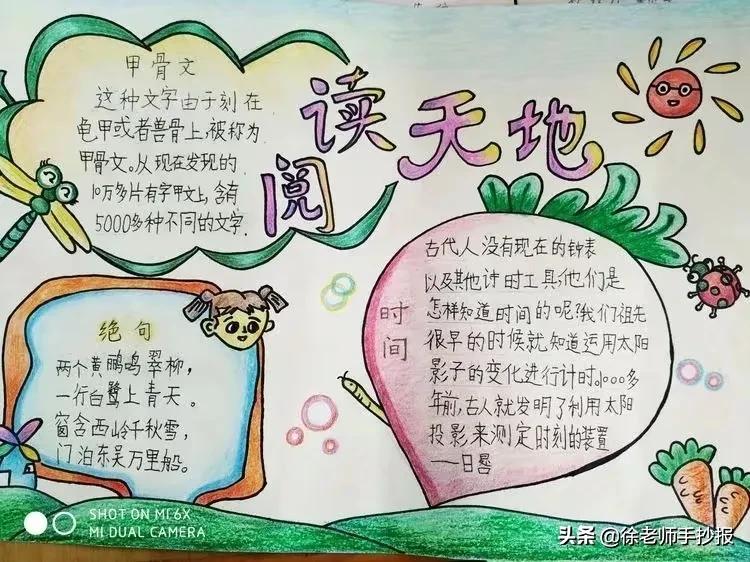 阅读天地
甲骨文
这种文字由于刻在
龟甲或者兽骨上,被称为
甲骨文。从现在发现的
10万多片有字甲文上,含有
5000多种不同的文字.
绝句
两个黄鹂鸣翠柳,
一行白鹭上青天。
窗含西岭千秋雪,
门泊东吴万里船。
时间
古代人没有现在的钟表
以及其他计时工具,他们是
怎样知道时间的呢?我们祖先
很早的时候就知道运用太阳
影子的变化进行计时。1000多
年前,古人就发明了利用太阳
投影来测定时刻的装置
——日晷
SHOT ON MI 6X
MI DUAL CAMERA
头条 @徐老师手抄报